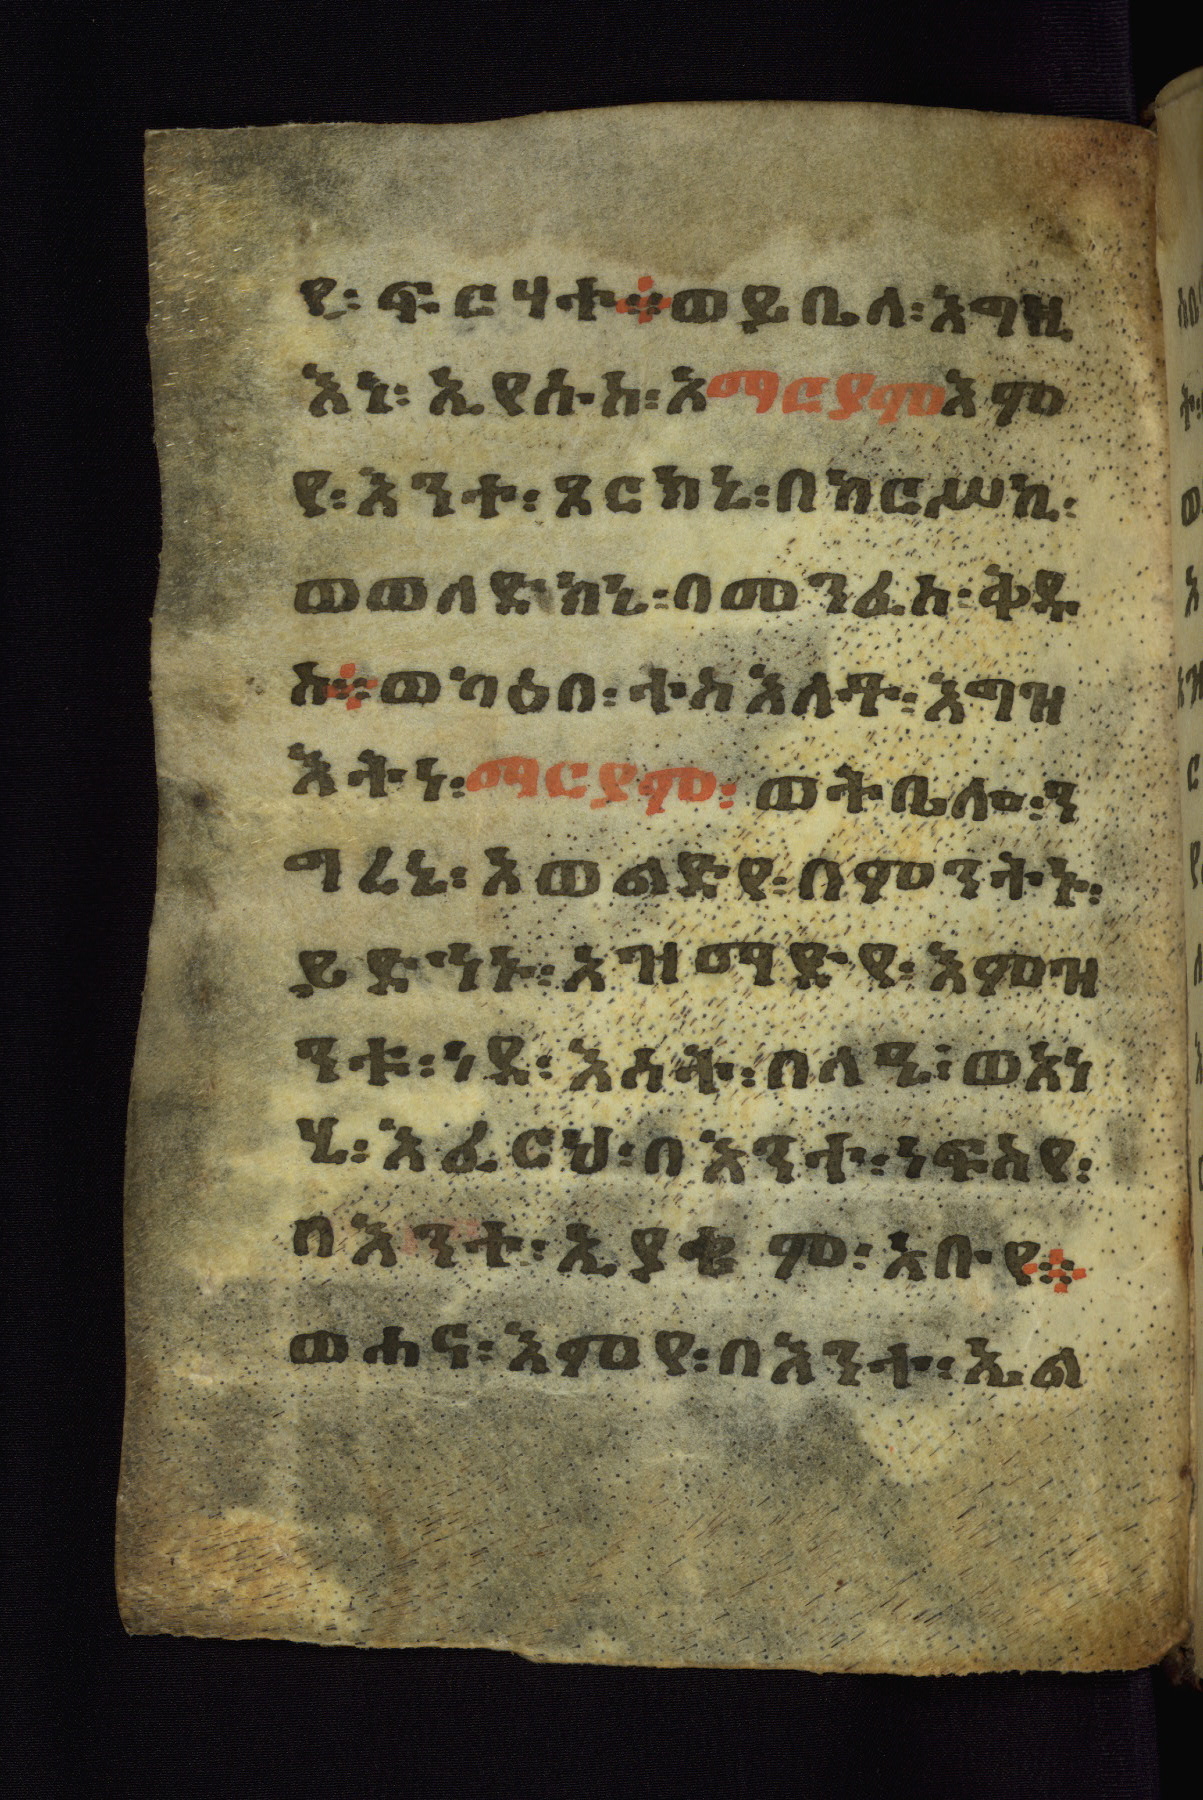 የ፡ ፍርሃተ፨ወይቤላ፡እግዚ
እነ፡ ኢየሱስ፡እማርያምእም
የ፡እንተ፡ጾርክኒ፡በከርሥኪ፡
ወወለድክኒ፡በመንፈስ፡ቅዱ
ስ፨ወካዕበ፡ተስእለቶ፡እግዝ
እትነ፡ማርያም፡ ወትቤሎ፡ን
ግረኒ፡እወልድየ፡በምንትኑ፡
ይድኅኑ፡አዝማድየ፡እምዝ
ንቱ፡ነደ፡እሳት፡በላዒ፡ወአነ
ሂ፡እፈርህ፡በእንተ፡ነፍስየ፡
በእንተ፡ኢያቄ ም፡አቡየ፨
ወሐና፡እምየ፡በእንተ፡ኤል